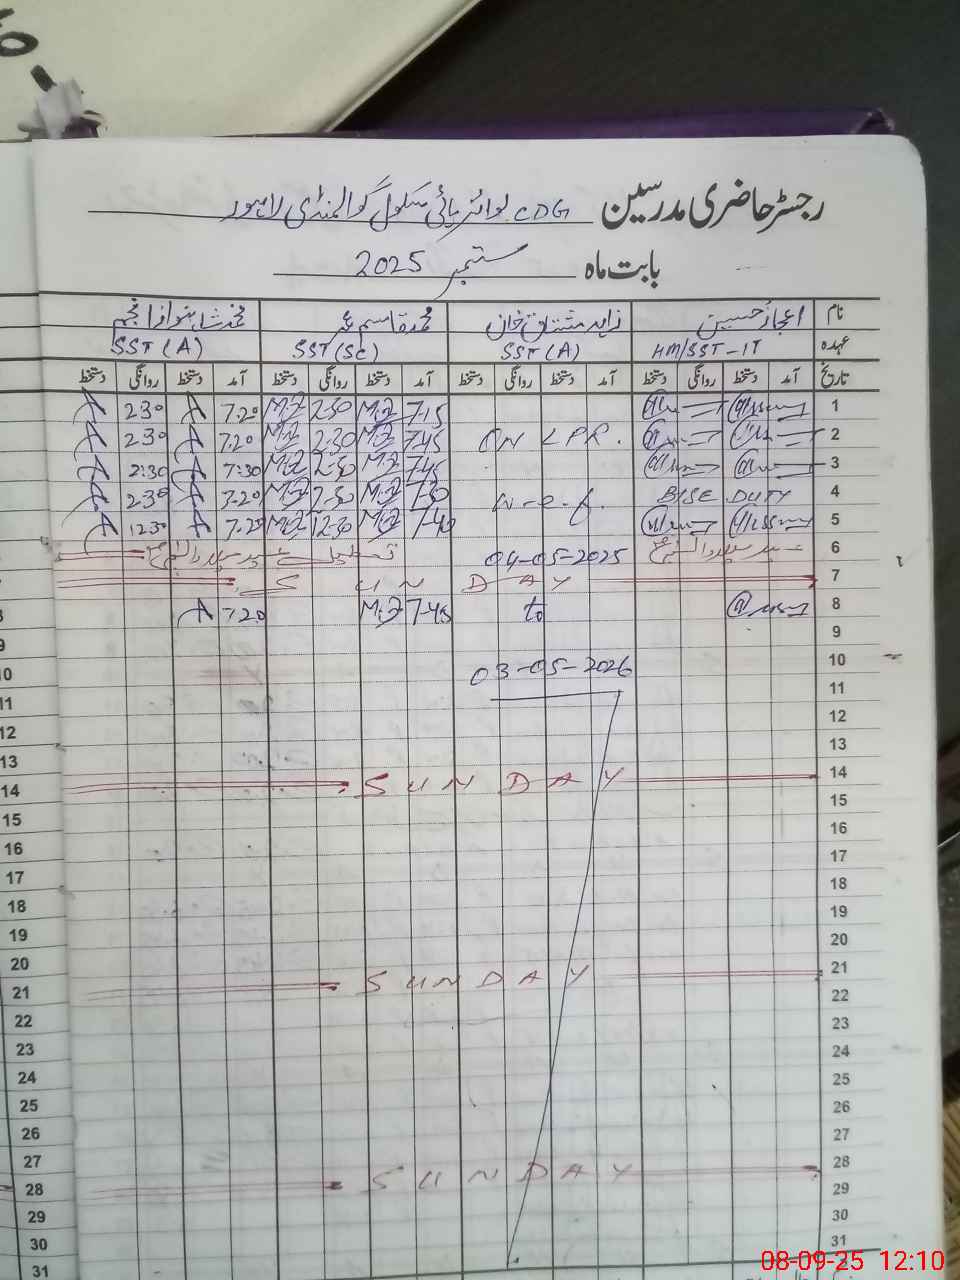 رجسٹر حاضری مدرسین CDG بوائز ہائی سکول گوالمنڈی لاہور
بابت ماہ ستمبر 2025
نام اعجاز حسین زاہد مشتاق خان محمد قاسم محمد شاہنواز انجم
عہدہ HM/SST-IT SST (A) SST (Sc) SST (A)
تاریخ آمد دستخط روانگی دستخط آمد دستخط روانگی دستخط آمد دستخط روانگی دستخط آمد دستخط روانگی دستخط
1 7-15 2-30 7.20 2.30
2 ON LPR. 7.45 2.30 7.20 2.30
3 7.45 7:30 2:30
4 BISE DUTY w-e-f. 7.20 2.30
5 7.20 1230
6 عید میلاد النبیؐ 04-05-2025 تعطیل عید میلاد النبیؐ
7 SUNDAY
8 to 7-45 7.20
9
10 03-05-2026
11
12
13
14 SUNDAY
15
16
17
18
19
20
21 SUNDAY
22
23
24
25
26
27
28 SUNDAY
29
30
31
8
9
10
11
12
13
14
15
16
17
18
19
20
21
22
23
24
25
26
27
28
29
30
31
08-09-25 12:10